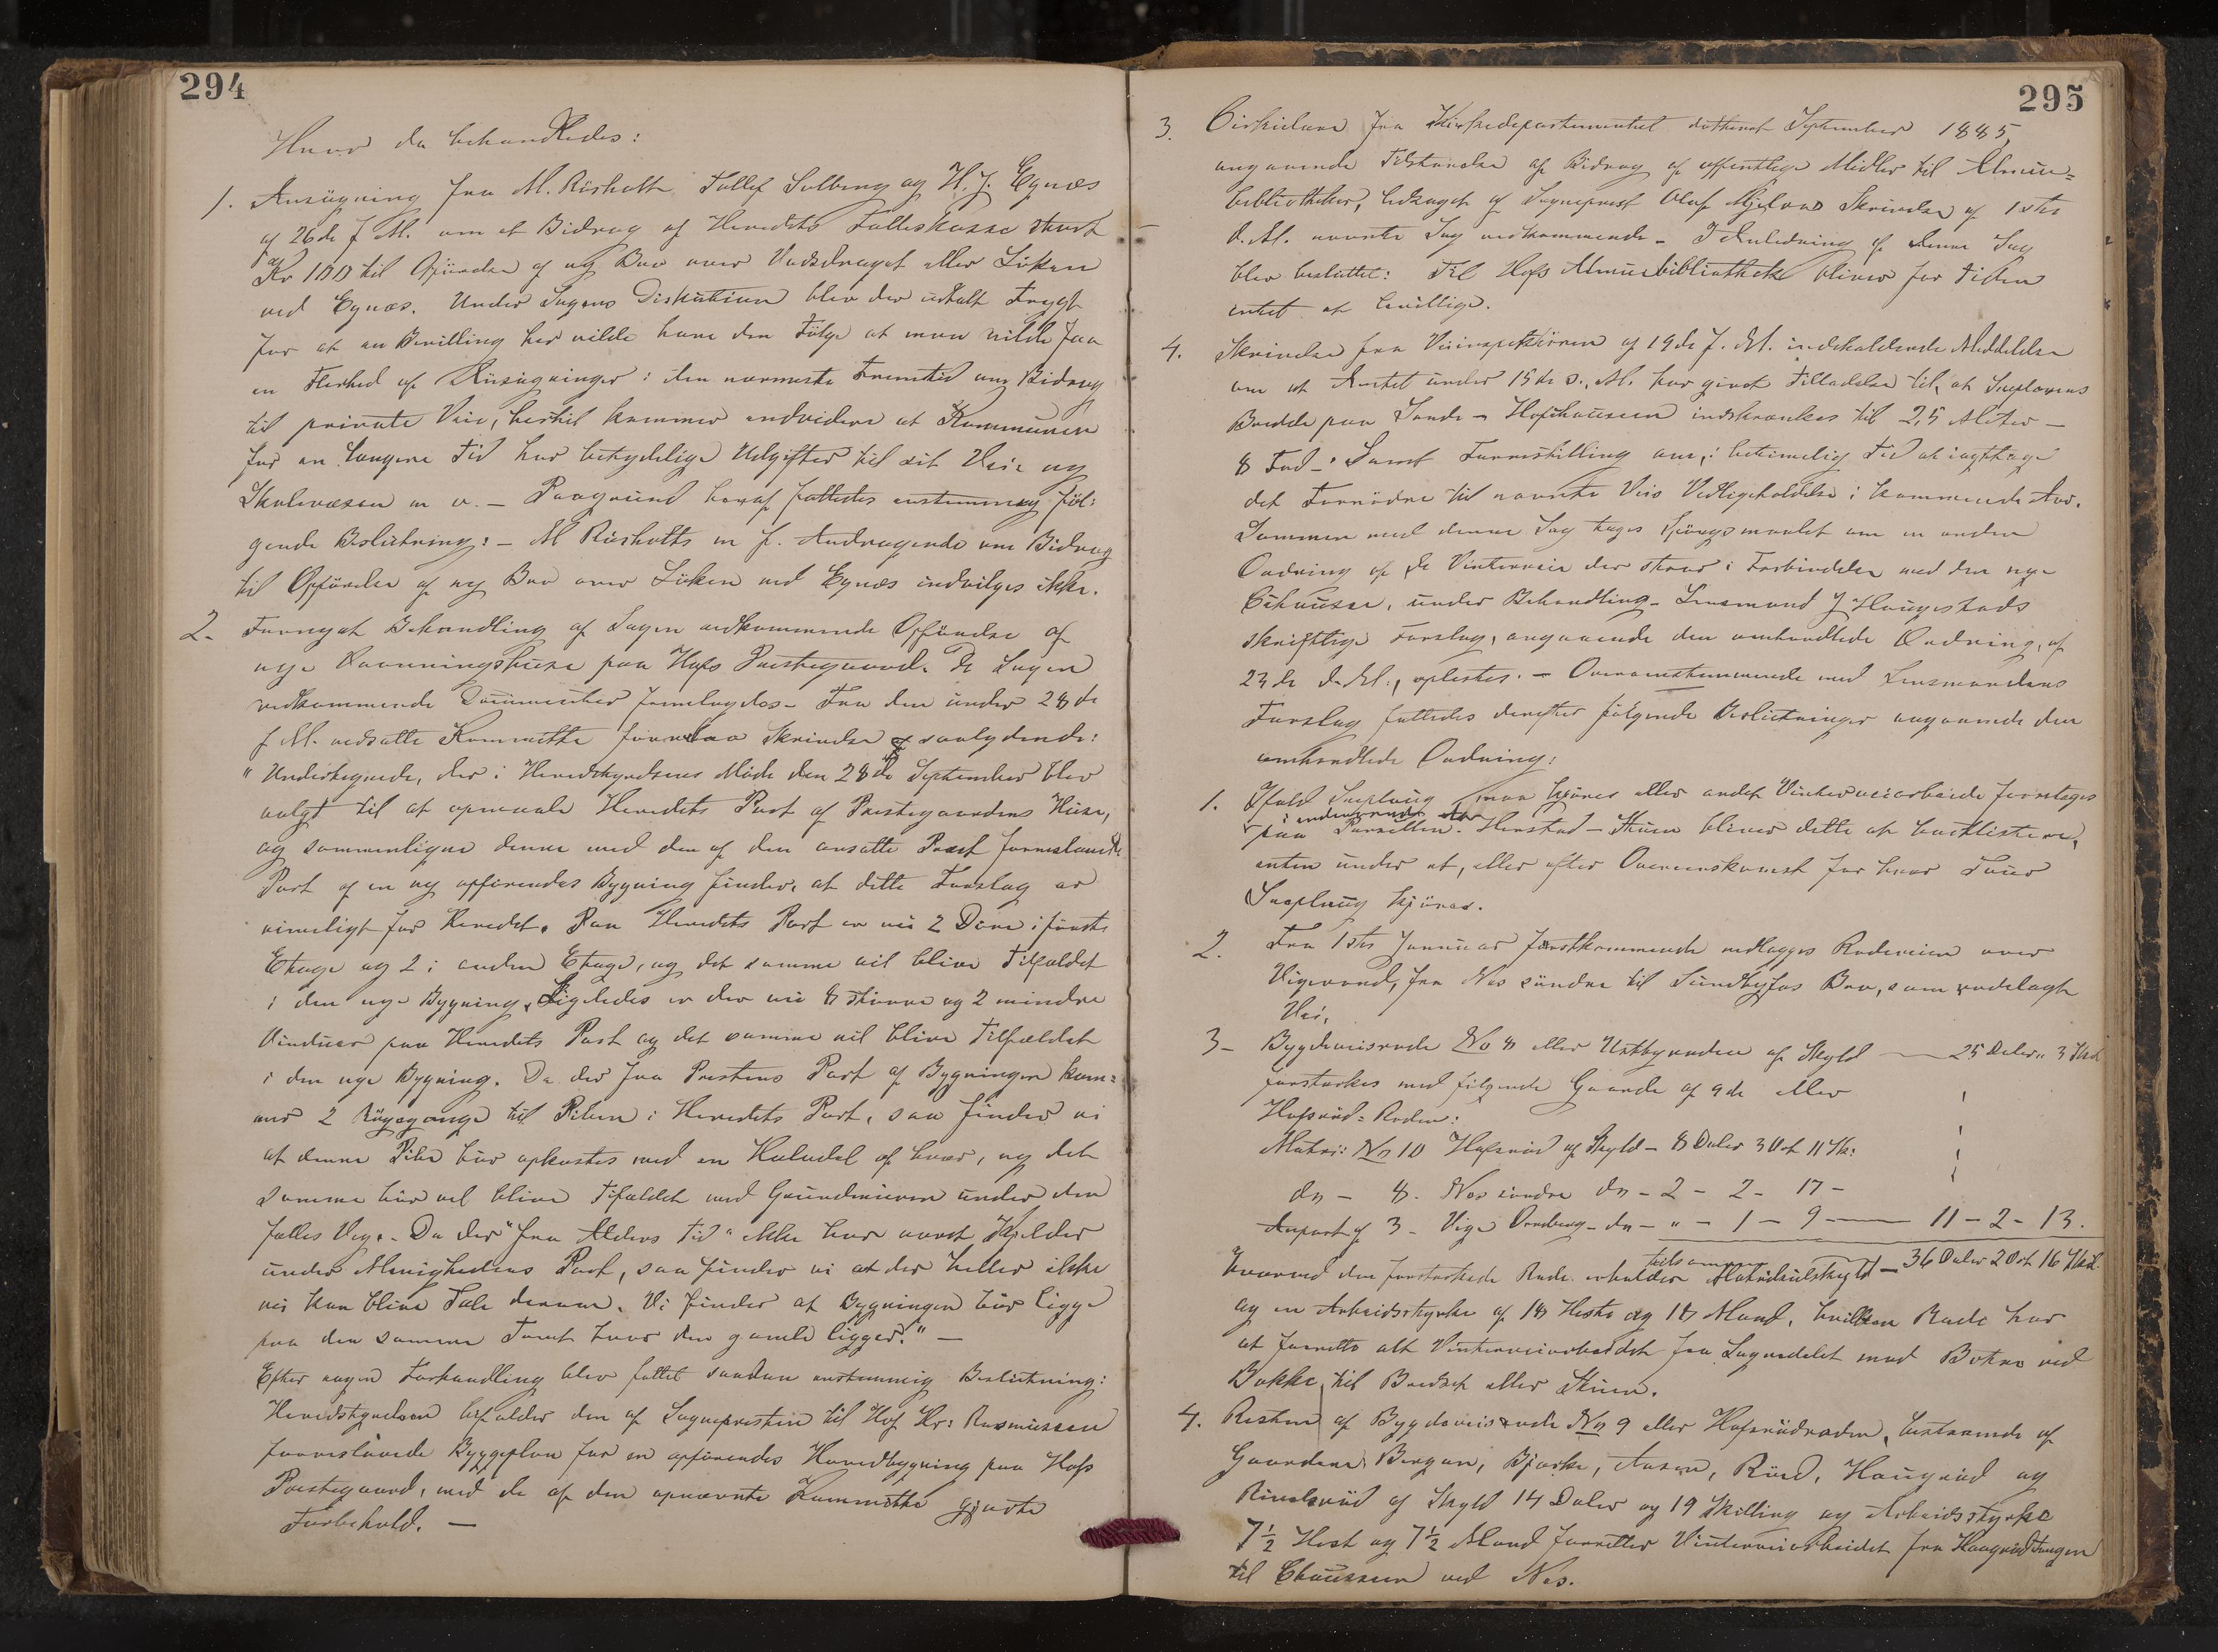 294
Hvor da behandledes:
1. Ansøgning fra M. Rüsholtt Tollef Solberg og H. J. Egnæs
af 26de f. M. om et Bidrag af Herredets Fælleskasse stort
Kr 100 til Opførelse af ny Bro over Vasdraget eller Löken
ved Egnæs. Under Sagens Diskution blev der udtalt Frygt
for at en Bevilling her vilde have den Følge at man vilde faa
en Flerhed af Ansøgninger i den nærmeste Fremtid om Bidrag
til private Veie, hertil kommer endvidere at Kommunen
for en længere Tid har betydelige Udgifter til sit Vei- og
Skolevæsen m. v. – Paagrund heraf fattedes enstemmig föl:
gende Beslutning: – M Rüsholtts m fl. Andragende om Bidrag
til Opförelse af ny Bro over Löken ved Egnæs indvilges ikke.
2. Fornyet Behandling af Sagen vedkommende Opförelse af
nye Vaaningshuse paa Hofs Prestegaard. De Sagen
vedkommende Documenter fremlagdes – Fra den under 28de
f. M. nedsatte Kommitte forelaa Skrivelse saalydende:
"Undertegnede, der i Herredstyrelsens Möde den 28de September blev
valgt til at opmaale Herredets Part af Prestegaardens Huse,
og sammenligne denne med den af den ansatte Prest foreslaaede
Part af en ny opförendes Bygning finder, at dette Forslag er
rimeligt for Herredet. Paa Herredets Part er nu 2 Döre i første
Etage og 2 i anden Etage, og det samme vil blive Tilfældet
i den nye Bygning. Ligeledes er der nu 8 större og 2 mindre
Vinduer paa Herredets Part og det samme vil blive Tilfældet
i den nye Bygning. Da der fra Prestens Part af Bygningen kom=
mer 2 Røgegange til Piben i Herredets Part, saa finder vi
at denne Pibe bør opkostes med en Halvdel af hver, og det
samme bür vel blive Tifældet med Grundmuren under den
fælles Veg. – Da der "fra Alders Tid" ikke har været Kjelder
under Menighedens Part, saa finder vi at der heller ikke
nu kan blive Tale derom. Vi finder at Bygningen bür ligge
paa den samme Tomt hvor den gamle ligger." –
Efter nogen Forhandling blev fattet saadan enstemmig Beslutning:
Herredstyrelsen bifalder den af Sognepresten til Hof Hr: Rasmussen
foreslaaede Byggeplan for en opförendes Hovedbygning paa Hofs
Prestegaard, med de af den opnævnte Kommitte gjorte
Forbehold. –
295
3. Cirkulære fra Kirkedepartementet dateret September 1885,
angaaende Tilstaaelse af Bidrag af offentlige Midler til Almue=
bibliotheker, ledsaget af Sogneprest Olaf Skrivelse af 1ste
d. M. nævnte Sag vedkommende – I Anledning af denne Sag
blev besluttet: Til Hofs Almuebibliothek bliver for Tiden
intet at bevillige.
4. Skrivelse fra Veiinspektören af 19de f. M. indeholdende Meddelelse
om at Amtet under 15de s. M. har givet Tilladelse til, at Sneplovens
Bredde paa Sande – Hofchausseen indskrænkes til 2,5 Meter –
8 Fod – Samt Forestilling om, i betimelig Tid at iagttage
det Fornödne til nævnte Veis Vedligeholdelse i kommende Aar.
Sammen med denne Sag toges Spörgsmaalet om en anden
Ordning af de Vinterveie der staar i Forbindelse med den nye
Chausse, under Behandling – Lensmand J Haugestads
skriftlige Forslag, angaaende den omhandlede Ordning, af
23de d. M., oplæstes. – Overenstemmende med Lensmandens
Forslag fattedes derefter følgende Beslutninger angaaende den
omhandlede Ordning:
1. Ifald Sneploug maa kjöres eller andet Vinterveiarbeide foretages
paa Parsellen. Herstad – Skuen bliver dette at bortlicitere,
enten under et, eller efter Overenskomst for hver Tuur
Sneploug kjøres.
2. Fra 1ste Januar førstkommende nedlægges Rodeveien over
Vigevand, fra Nes søndre til Sundbyfos Bro, som rodelagt
Vei,
3 – Bygdeveisrode No 8 eller af Skyld – 25 Daler " 3 Skil
forstærkes med følgende Gaarde af 9de eller
Hofsrüd = Roden:
Matri: No 10 Hofsrüd af Skyld – 8 Daler 3 Ort 11 Sk:
do – 8. Nes søndre do – 2 – 2 – 17 –
Anpart af 3 – Vige do – " – 1 – 9 – 11 – 2 – 13.
Hvorved den forstærkede Rode erholder tilsammen Matrikulskyld – 36 Daler 2 Ort 16 Skil.
og en Arbeidsstyrke af 18 Heste og 18 Mand, hvilken Rode har
at forrette alt Vinterveiarbeidet fra Sognedelet mod Botne ved
Bakke, til Bredsch eller Skuen.
4. Resten af Bygdeveisrode No 9 eller Hofsrüdroden, bestaaende af
Gaardene Bergan, Bjerke, Aasen, Rüed, Haugrüd og
af Skyld 14 Daler og 19 Skilling og Arbeidsstyrke
7½ Hest og 7½ Mand forretter Vinterveiarbeidet fra
til Chausseen ved Nes.